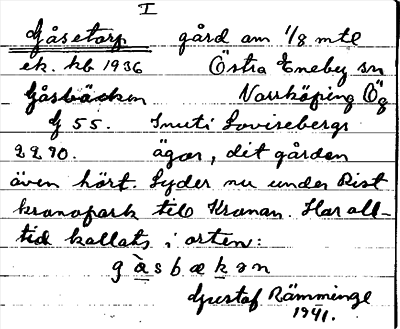 I
Gåsetorp gård om 1/8 mtl
ek. kb 1936 Östra Eneby sn
Gåsbäcken Norrköping Ög
G 55. Inuti Lovisebergs
2290. ägor, dit gården
även hört. Lyder nu under Rist
kronopark till Kronan. Har all-
tid kallats i orten:
gåsbækən
Gustaf Rämminge
1941.